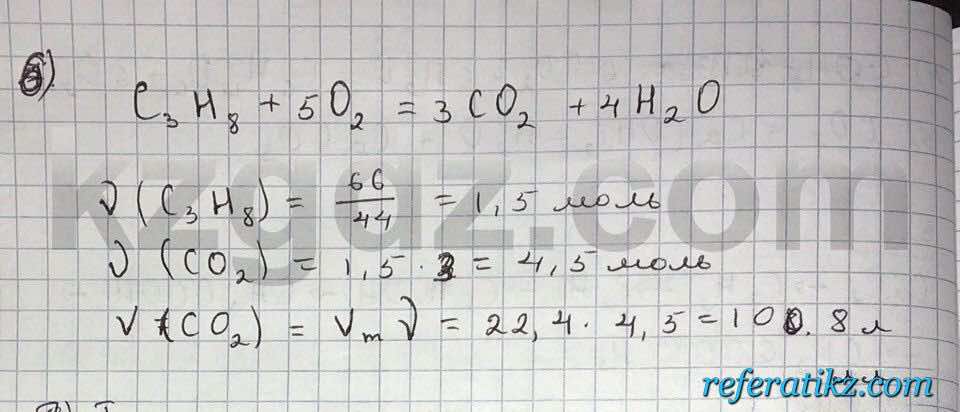 б).
C₃H₈ + 5O₂ = 3CO₂ + 4H₂O
kzgdz.com
ν(C₃H₈) = 66/44 = 1,5 моль
ν(CO₂) = 1,5 · 3 = 4,5 моль
V(CO₂) = Vₘν = 22,4 · 4,5 = 100.8 л
referatikz.com